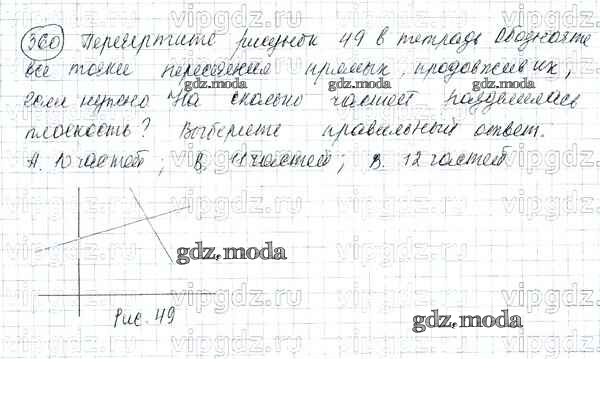 360 Перечертите рисунок 49 в тетрадь Обозначте
все точки пересечения прямых, продолжив их,
если нужно На сколько частей разделилась
плоскость? Выберете правильный ответ.
А. 10 частей; В. 11 частей; В. 12 частей
Рис. 49
vipgdz.ru
gdz.moda